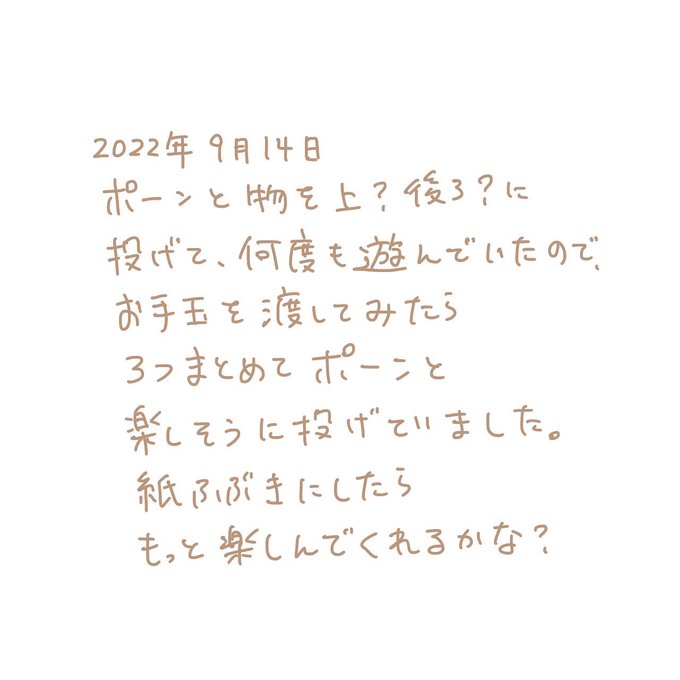 2022年9月14日
ポーンと物を上?後ろ?に
投げて、何度も遊んでいたので、
お手玉を渡してみたら
3つまとめてポーンと
楽しそうに投げていました。
紙ふぶきにしたら
もっと楽しんでくれるかな?